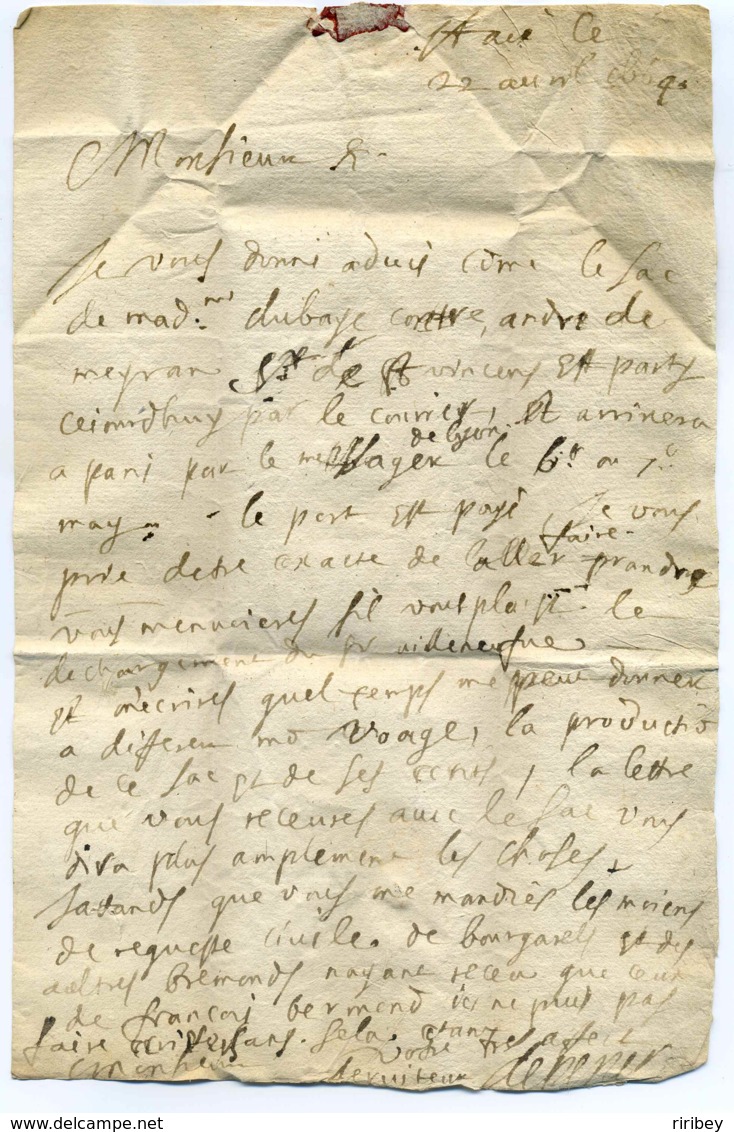 22 auril
Monsieur &.
Je vous donne aduis côme le sac
de mad.me dubaye contre, andre de
meyran Sr de St vincens Est party
ceiourdhuy par le courier, Et arriuera
a paris par le messager de lyon le 6e ou 7e
may - le port Est payé, Je vous
prie detre exacte de laller faire prandre
vous menuoieres sil vous plait le
dechargement du Sr uilleneufue
Et mecrires quel temps me peut donner
a differer mo voage, la productiô
de ce sac Et de ses ecrits, la lettre
que vous receures auec le sac vous
dira plus amplement les choses,
Jattands que vous me mandiés les moiens
de requeste ciuile. de bourgarels Et des
aultres bremonds nayant receu que ceux
de françois bermond ie ne puis pas
faire ecritures sans sela Estant
Monsieur Votre tres affect
seruiteur
ribrey